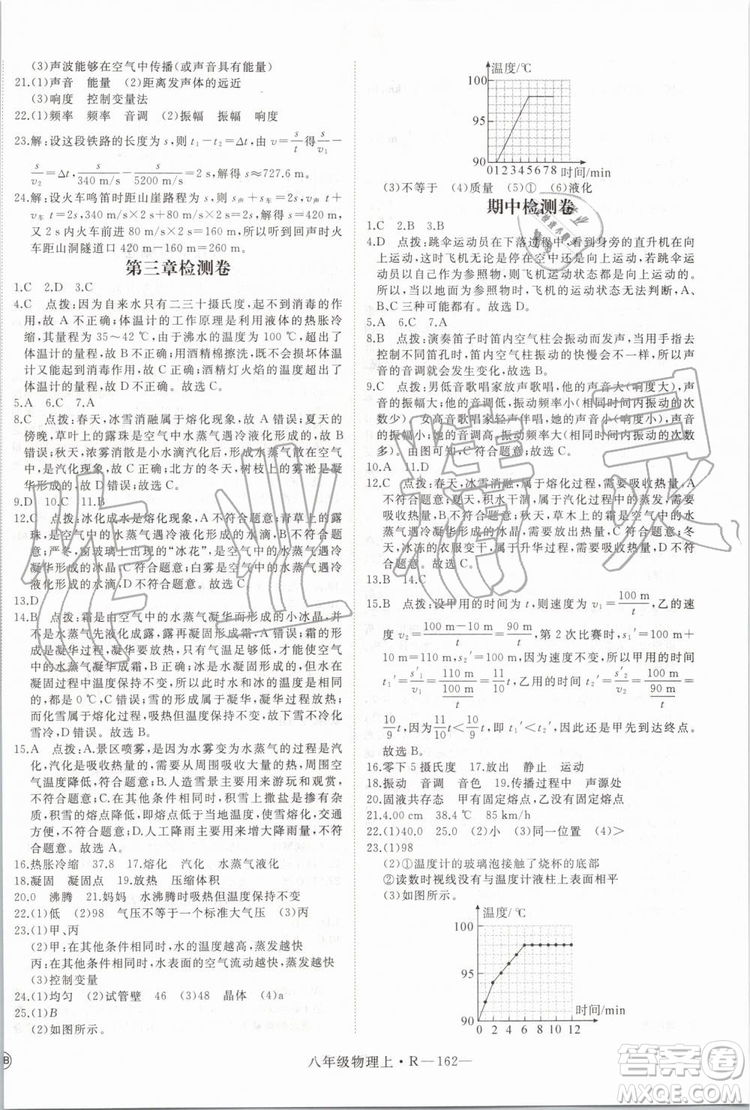 (3)声波能够在空气中传播(或声音具有能量)
21.(1)声音 能量 (2)距离发声体的远近
(3)响度 控制变量法
22.(1)频率 频率 音调 (2)振幅 振幅 响度
23.解:设这段铁路的长度为 s,t₁-t₂=Δt,由 v=s/t 得 s/v₁-
s/v₂=Δt, s/340 m/s - s/5200 m/s=2 s,s≈727.6 m。
24.解:设火车鸣笛时到山崖路程为 s,则 s声+s车=2s,即
v声 t+v车 t=2s,340 m/s×2 s+80 m/s×2 s=2s,解得 s=420 m,
又因为在 2 s 内火车前进了 80 m/s×2 s=160 m,所以听到回声时火
车距山洞隧道口 420 m-160 m=260 m。
第三章检测卷
1.C 2.D 3.D
4.C 点拨:因为自来水只有二三十摄氏度,起不到消毒的作
用,故 A 不正确;体温计的工作原理是利用液体的热胀冷
缩,其量程为 35~42 ℃,故 B 不正确;开水的温度超出了
体温计的量程,故 D 不正确;用酒精棉擦洗,既可以防止体
温计过热,又可以杀菌消毒,故 C 正确;酒精灯火焰的温度
超出了体温计的量程,故 D 不正确。故选 C。
5.A 6.C 7.A
8.C 点拨:春天,冰雪消融属于熔化现象,故 A 错误;夏天的
傍晚,草叶上的露珠是空气中水蒸气遇冷液化形成的,故 B
错误;秋天,浓雾消散是小水滴汽化成水蒸气散入到大气
中,故汽化现象,故 C 正确;北方的冬天,树枝上的雾凇是凝华
形成的,故 D 错误。故选 C。
9.D 10.C 11.B
12.C 点拨:冰化成水是熔化现象,A 不符合题意;青草上的露
珠,是空气中的水蒸气遇冷液化形成的小水滴,B 不符合题
意;严冬,窗玻璃上出现的“冰花”,是空气中的水蒸气遇冷
凝华形成的小冰晶,C 符合题意;白雾是空气中的水蒸气遇冷
液化形成的小水滴,D 不符合题意。故选 C。
13.D
14.B 点拨:霜是由空气中水蒸气凝华而形成的小冰晶,是由于
水蒸气先液化形成露,露再凝固形成的,故 A 错误;霜的形成
是凝华过程,凝华过程要放热,只有气温足够低,才能使空
气中的水蒸气凝华成霜,故 B 正确;晶体在凝固过程中,在
凝固过程中温度保持不变,所以水凝固成霜的过程中温度
都是 0 ℃,故 C 错误;霜的形成属于凝华,凝华过程放热;
而化雪属于熔化过程,熔化过程吸热,故 D 错误。故选 B。
15.A 点拨:A.景区喷雾,是因为水雾变为水蒸气的过程是汽
化,汽化吸热,从而降低周围环境的温度,不是为了增大空
气湿度降低,不符合题意;B.造雪机造雪便于游玩和观赏,不
影响气温,不符合题意;C.积雪上撒盐是将积雪熔点降低,不
符合题意;D.人工降雨用来增大降雨量,不符合题意。故选 A。
16.热胀冷缩 37.8 17.熔化 汽化 水蒸气液化
18.凝固 凝固 19.放热 压缩体积
20.0 沸腾 21.妈妈 妈妈摸时水的温度保持不变
22.(1)低 (2)98 气压不等于一个标准大气压 (3)D
23.(1)甲、丙
(2)甲:在其他条件相同时,水的温度越高,蒸发越快
丙:在其他条件相同时,水的表面积越大,蒸发越快
(3)控制变量
24.(1)均匀 (2)试管壁 46 (3)48 晶体 (4)a
25.(1)B
(2)如图所示。
温度/℃
100
95
90
012345678 时间/min
(3)不等于 (4)质量 (5)① (6)液化
期中检测卷
1.C 2.B 3.B
4.D 点拨:跳伞运动员在下落过程中,看到身旁的直升机在向
上运动,说明直升机相对于运动员是向上运动的;若跳伞
运动员以自己作为参照物,飞机的运动状态都是向上运动
的。所以以地面为参照物,飞机的运动状态无法判断,故 A、
B、C 三种可能都有。故选 D。
5.A 6.C 7.A
8.B 点拨:演奏笛子时笛内空气柱会振动而发声,当用手指去
控制不同笛孔时,笛内空气柱振动的快慢会不一样,所以声
音的音调就会发生变化。故选 B。
9.C 点拨:男低音歌唱家放声歌唱,他的声音振幅大(响度大),
但是音调低,振动频率小(相同时间内振动的次
数少);女高音歌唱家轻声伴唱,她的声音振幅小(响度
小),她的音调高,振动频率大(相同时间内振动的次数
多)。由图可知,C 符合题意。故选 C。
10.A 11.D
12.C 点拨:春天,冰雪消融,属于熔化过程,熔化过程需要吸
热,A 不符合题意;夏天,积水干涸,属于汽化过程,需要吸
热,B 不符合题意;秋天,草木上的霜是空气中的水蒸气遇
冷凝华形成的小冰晶,需要放出热量,C 符合题意;冬
天,冰冻的衣服变干,属于升华过程,需要吸热,D 不符合
题意。故选 C。
13.B 14.B
15.B 点拨:设甲用的时间为 t,则速度为 v₁=100 m/t,乙的速
度 v₂=(100 m-10 m)/t=90 m/t,第 2 次比赛时,s₁′=100 m
+10 m=110 m,s₂′=100 m,因为速度不变,所以甲用的时
间 t₁′=s₁′/v₁=110 m/(100 m/t)=11/10 t,乙用的时间 t₂′=s₂′/v₂=100 m/(90 m/t)=
10/9 t;因为 11/10 t<10/9 t,即 t₁′<t₂′,因此是甲先到达终点。
故选 B。
16.零下 5 摄氏度 17.放出 静止 运动
18.振动 音调 音色 19.传播过程中 声源处
20.固液共存态 甲有固定熔点,乙没有固定熔点
21.4.00 cm 38.4 ℃ 85 km/h
22.(1)40.0 (2)小 (3)同一位置
23.(1)98
(2)①温度计的玻璃泡接触了烧杯的底部
②读数时视线没有与温度计液柱上表面相平
(3)如图所示。
温度/℃
100
95
90
0 2 4 6 8 10 12 时间/min
八年级物理上·R—162—